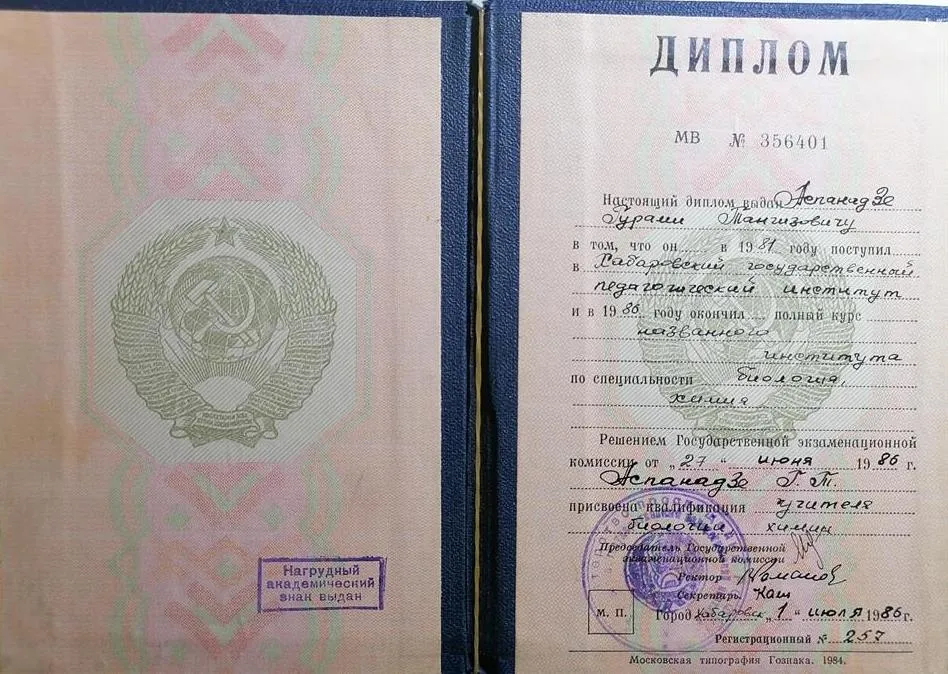 Нагрудный
академический
знак выдан
ДИПЛОМ
МВ № 356401
Настоящий диплом выдан Аспанадзе
Гурами Тангизовичу
в том, что он в 1981 году поступил
в Хабаровский государственный
педагогический институт
и в 1986 году окончил полный курс
названного
института
по специальности биология,
химия
Решением Государственной экзаменационной
комиссии от „27“ июня 1986 г.
Аспанадзе Г. Т.
присвоена квалификация учителя
биологии химии
Председатель Государственной
экзаменационной комиссии
Ректор
Секретарь
М. П.
Город Хабаровск „1“ июля 1986 г.
Регистрационный № 257
Московская типография Гознака. 1984.